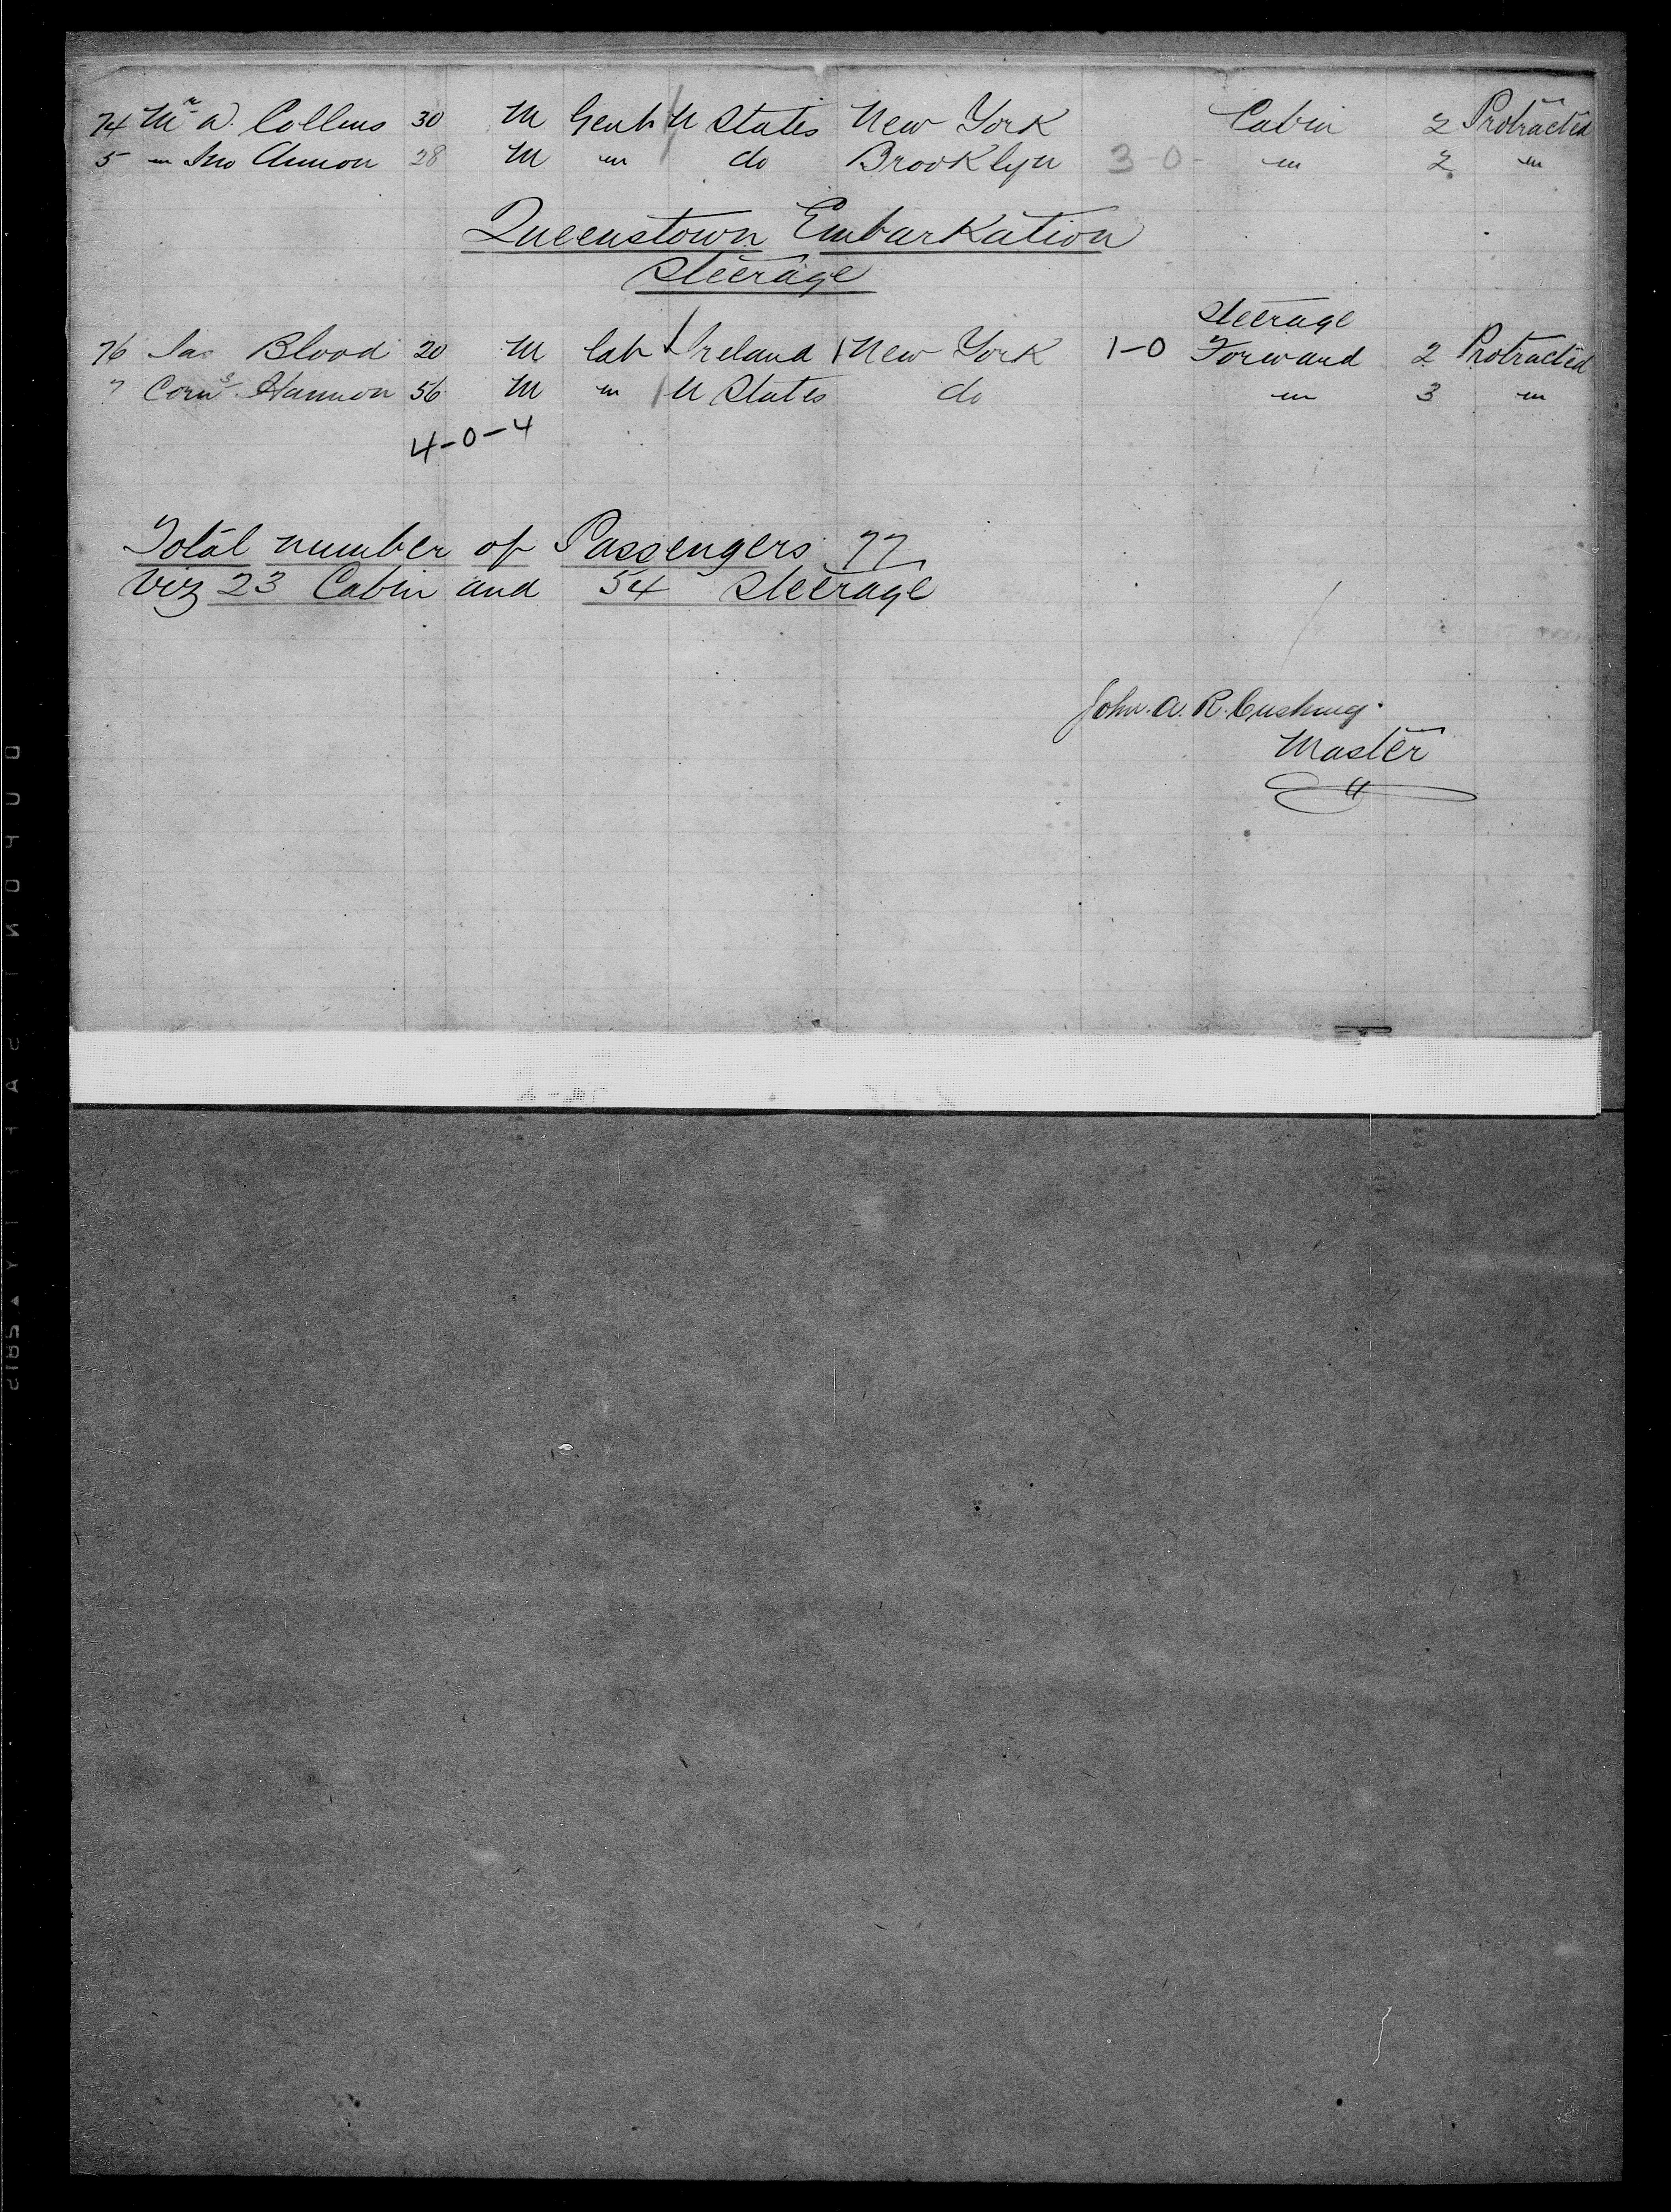 74 Mr W. Collins 30 M Gent U States New York Cabin 2 Protracted
5 " Jno Annon 28 M " do Brooklyn 3-0- " 2 "
Queenstown Embarkation
Steerage
Steerage
76 Jas Blood 20 M Lab Ireland New York 1-0 Forward 2 Protracted
7 Corns Hannon 56 M " U States do " 3 "
4-0-4
Total number of Passengers 77
Viz 23 Cabin and 54 Steerage
John. A. R. Cushing.
Master